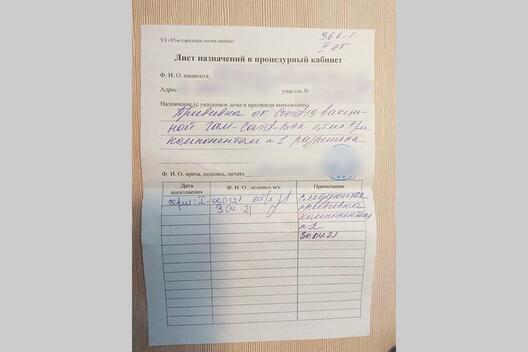 УЗ «35-я городская поликлиника»
366-1
Лист назначений в процедурный кабинет
Ф. И. О. пациента
Адрес участок №
Назначение (с указанием даты и кратности выполнения)
Прививка от Covid-19 вакци-
ной Гам-Covid-Вак
компонентом №1 разрешена
Ф. И. О. врача, подпись, печать
Дата выполнения Ф. И. О., подпись м/с Примечание
следующая
9.04.21 прививка
компонентом
№2
30.04.21